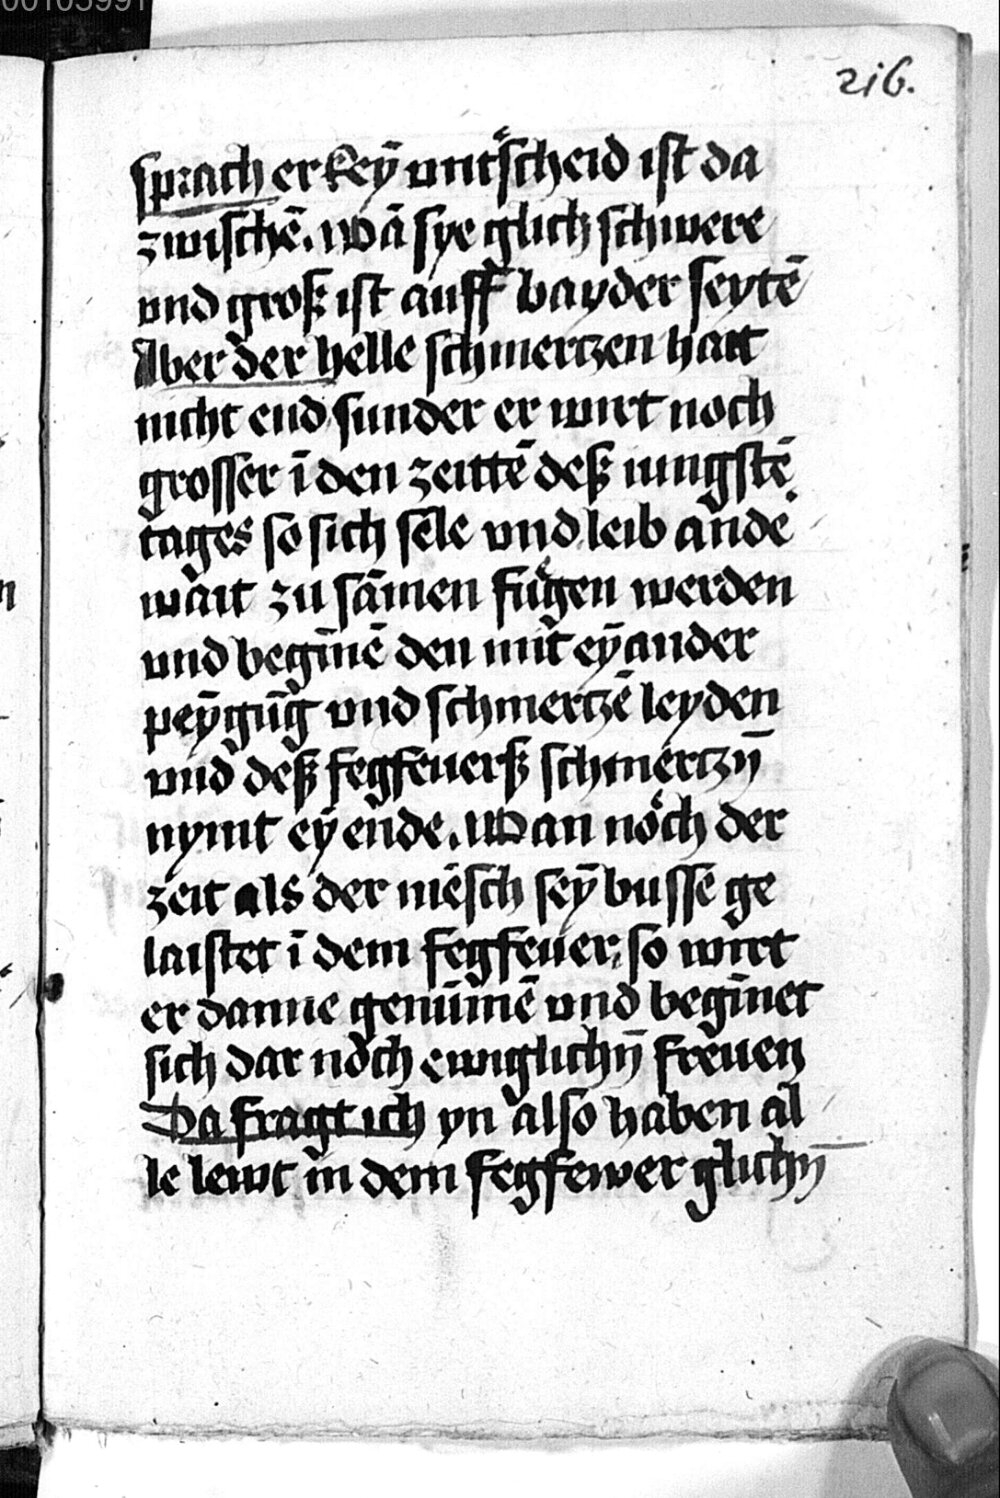 00103991
216.
sprach er keÿ untscheid ist da
zwischē. Wā sye glich schwere
vnd groß ist auff bayder seytē
Aber der helle schmertzen hatt
nicht end sunder er wirt noch
grosser ī den zeittē deß iungstē
tages so sich sele vnd leib ande
wait zu sāmen fugen werden
vnd begīnē den mit eȳander
peȳgūg vnd schmertzē leyden
vnd deß fegfeuerß schmertzn̄
nymt eȳ ende. Wan noch der
zeit als der mēsch seȳ busse ge
laistet ī dem fegfeuer, so wirt
er danne genūmē vnd begīnet
sich dar noch ewiglichn̄ freuen
Da fragt ich yn also haben al
le lewt in dem fegfewer glichn̄